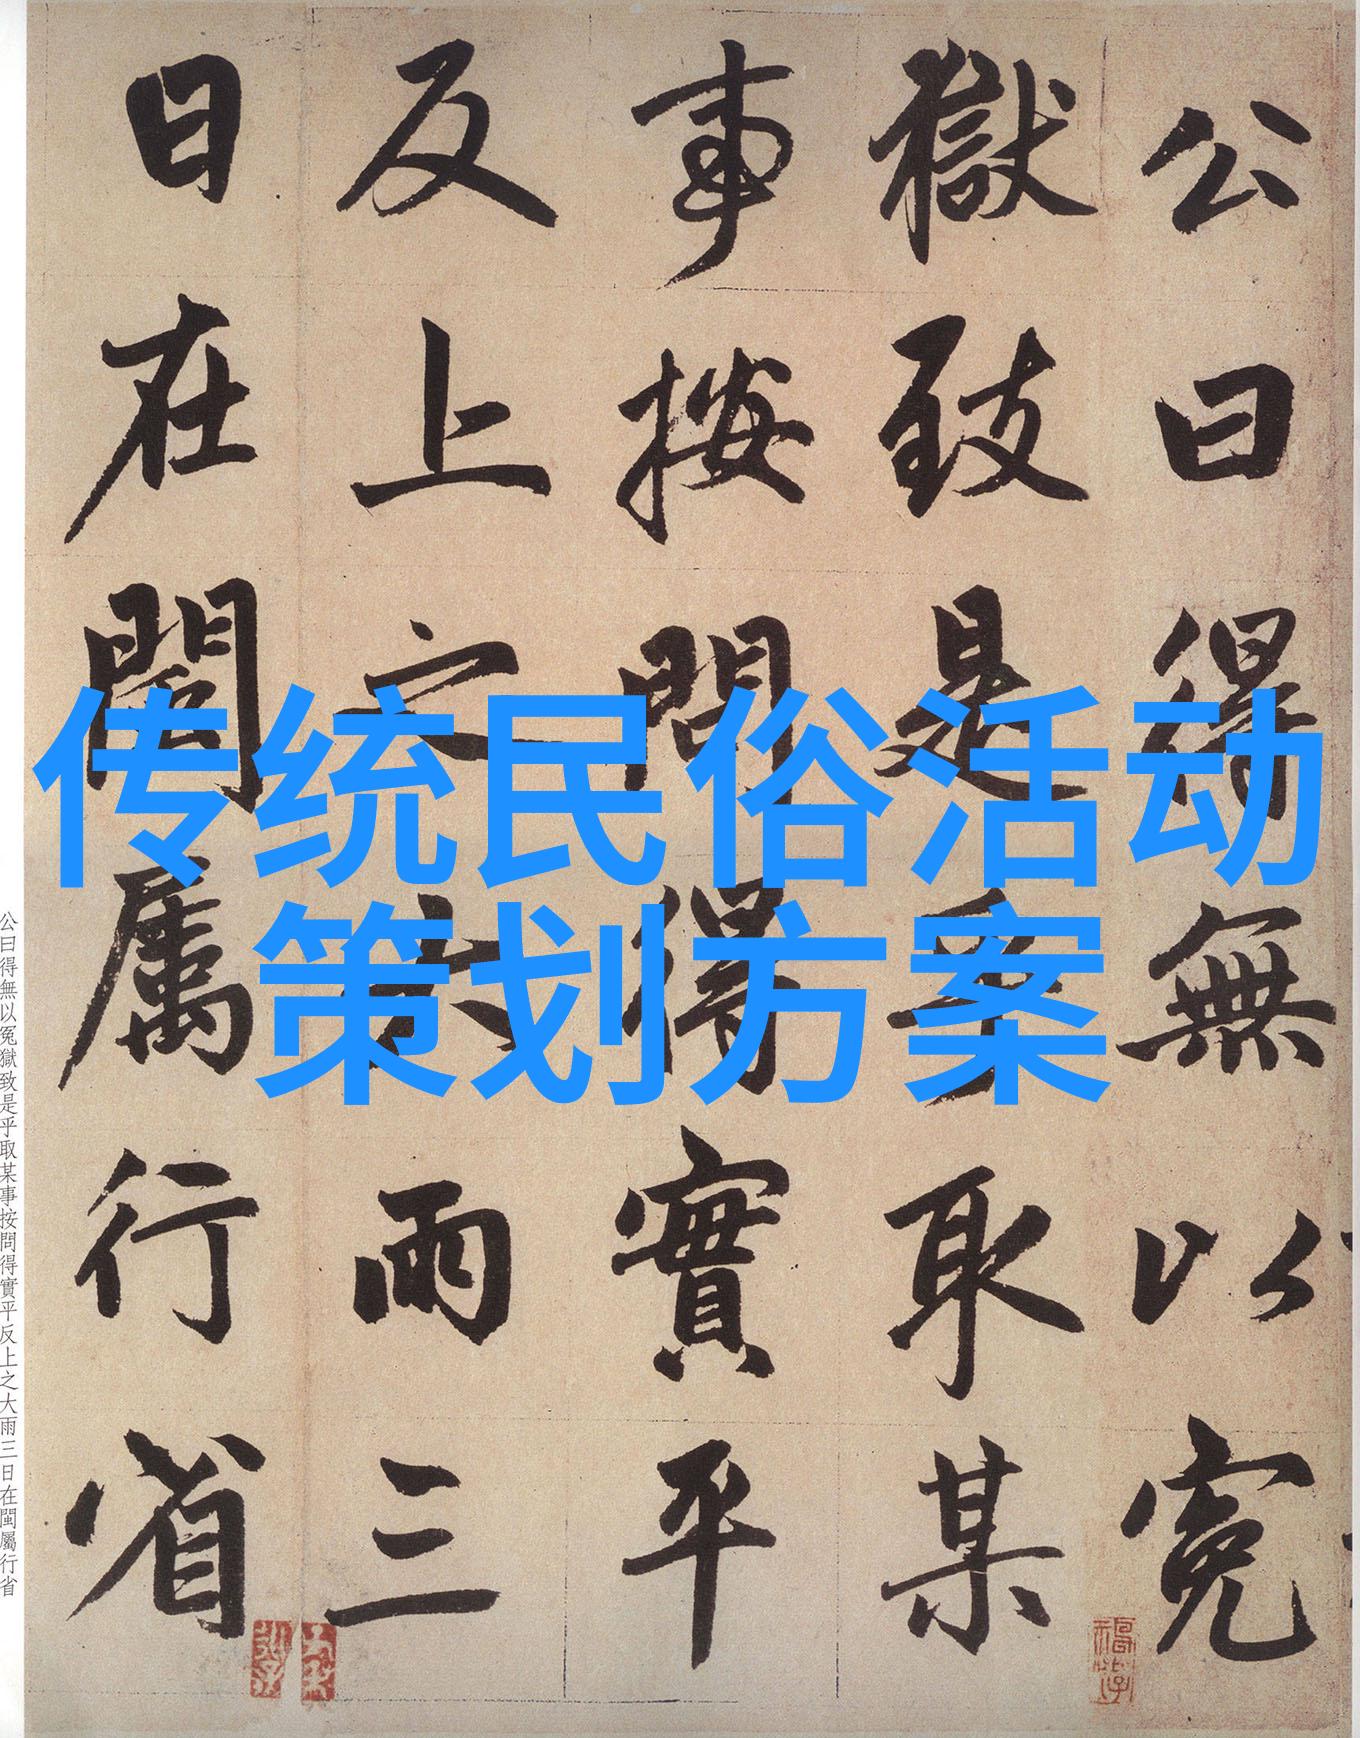 传统民俗活动
策划方案
公曰得無以冤
獄致是乎取某
事按問得實平
反上之大雨三
日在閩屬行省
公曰得無以冤獄致是乎取某事按問得實平反上之大雨三日在閩屬行省